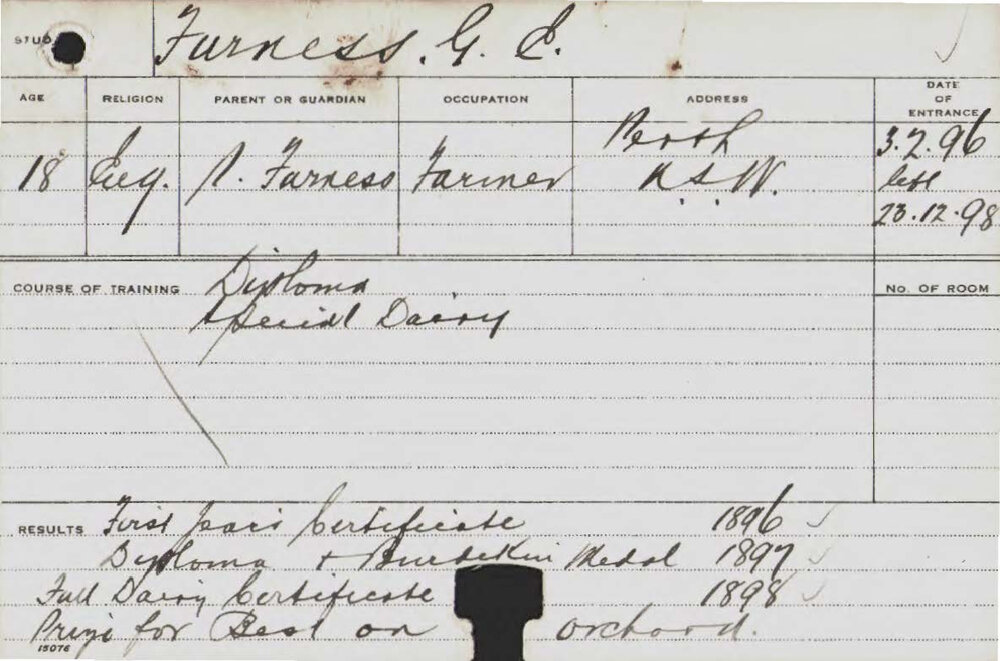 STUD Furness. G. E.
AGE RELIGION PARENT OR GUARDIAN OCCUPATION ADDRESS DATE OF ENTRANCE
Perth 3.2.96
18 Eng. Furness Farmer N.S.W. left
23.12.98
COURSE OF TRAINING Diploma No. OF ROOM
Special Dairy
RESULTS First Year's Certificate 1896
Diploma + Burdekin Medal 1897
Full Dairy Certificate 1898
Prize for Best on orchard.
15076